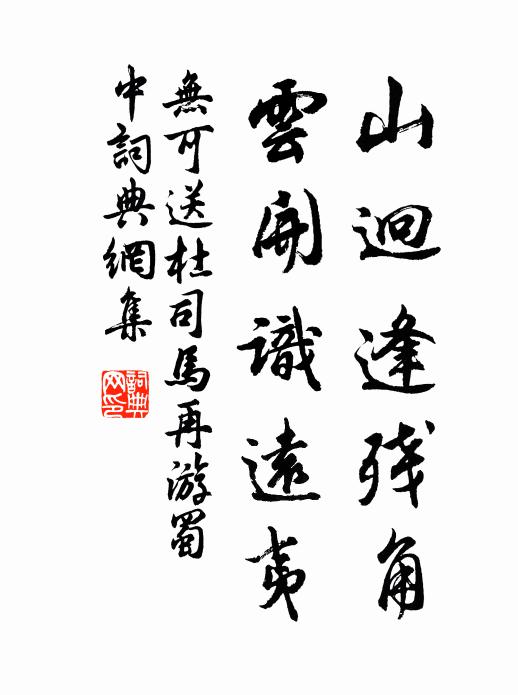 山迴逢残角
雲開識遠夷
無可送杜司馬再游蜀
中詞典網集
詞典网印